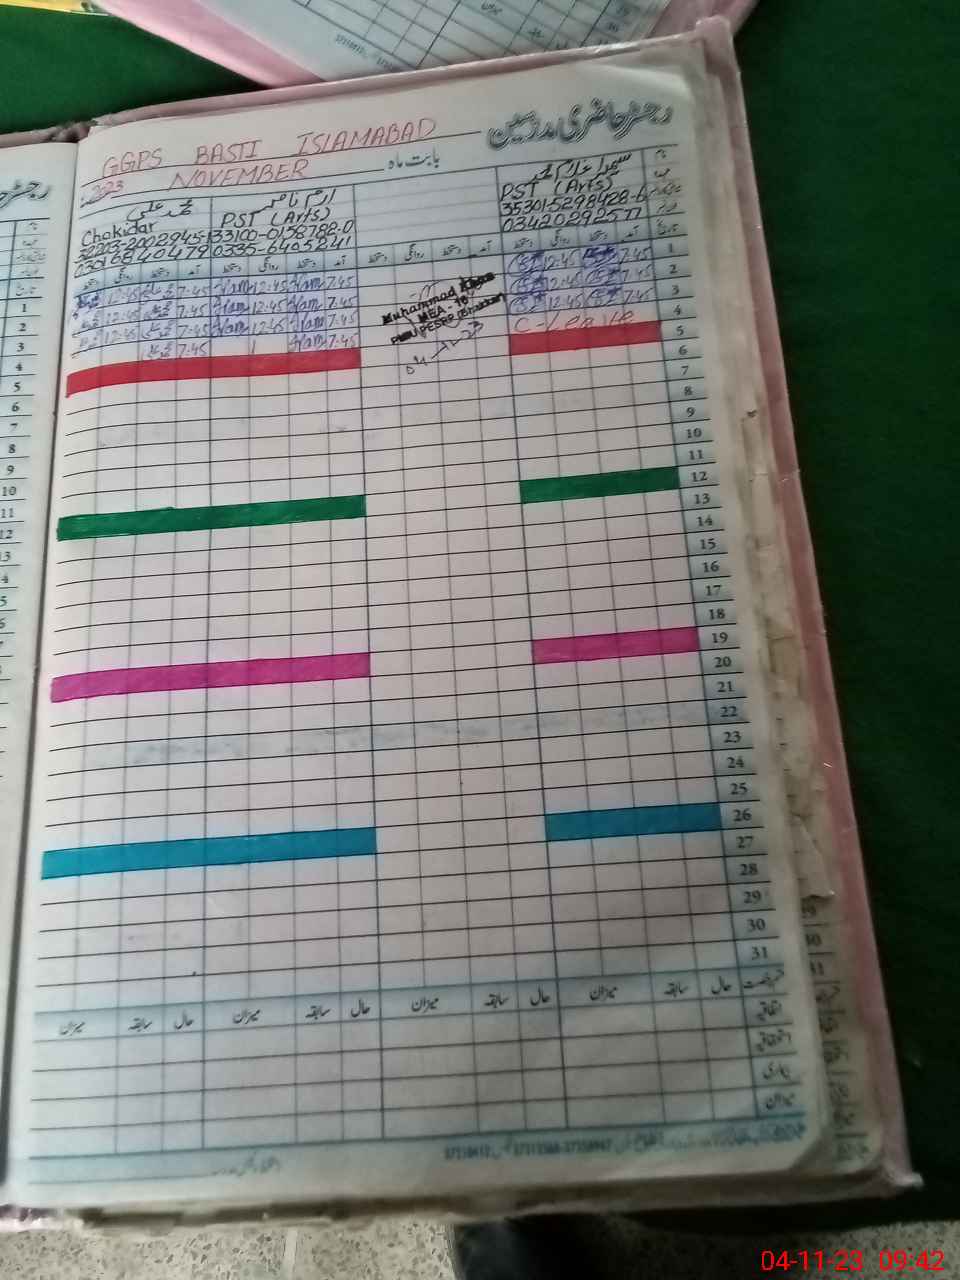 رجسٹر حاضری مدرسین
GGPS BASTI ISLAMABAD
بابت ماہ NOVEMBER 2023
PST (Arts)
03420292577
ارم ناصر
PST (Arts)
33100-0158782-0
0335-6405241
محمد علی
Chokidar
32203-2002945-1
03016840479
آمد دستخط روانگی دستخط آمد دستخط روانگی دستخط آمد دستخط روانگی دستخط
1 7:45 12:45 7:45 12:45 7:45 12:45
2 7:45 12:45 7:45 12:45 7:45 12:45
3 7:45 12:45 7:45 12:45 7:45 12:45
4 C-Leave 7:45 7:45
Muhammad
MEA - 16
PMIU PESRP (Bhakkar)
04-11-23
5
6
7
8
9
10
11
12
13
14
15
16
17
18
19
20
21
22
23
24
25
26
27
28
29
30
31
حال سابقہ میزان حال سابقہ میزان حال سابقہ میزان حال سابقہ میزان
اتفاقیہ
استحقاقیہ
بیماری
میزان
04-11-23 09:42